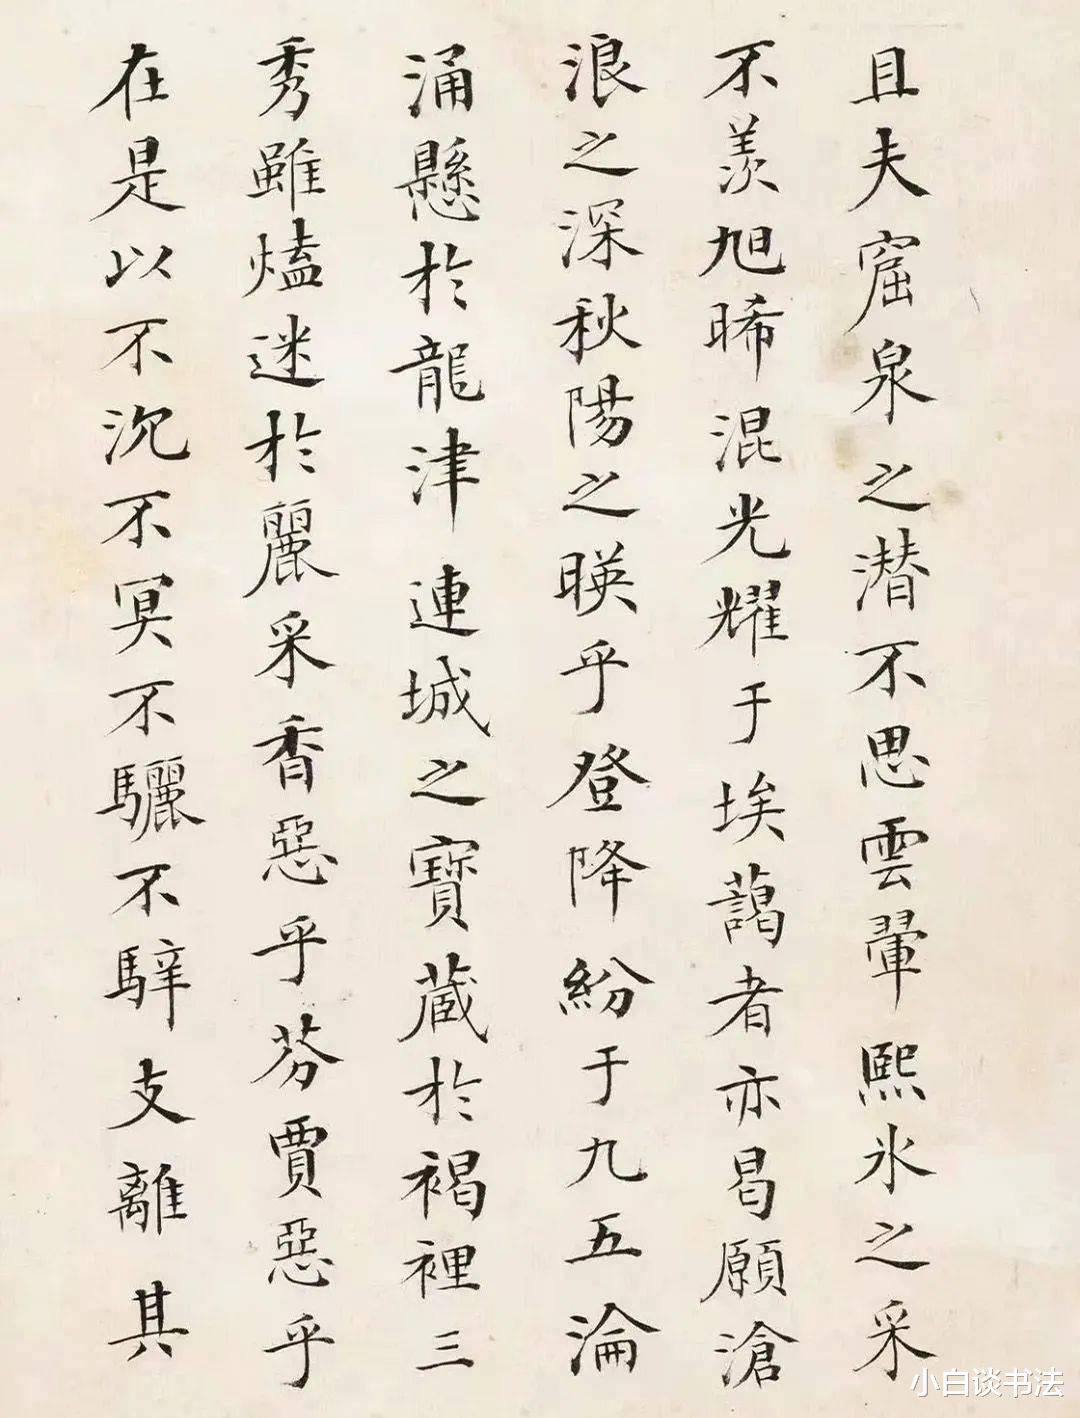 且夫窟泉之潜不思雲翬熙氷之采
不羡旭晞混光耀于埃藹者亦曷願滄
浪之深秋陽之暎乎登降紛于九五淪
涌懸於龍津連城之寶蔵於褐裡三
秀雖熆迷於麗采香惡乎芬賈惡乎
在是以不沉不冥不驪不騂支離其
小白谈书法